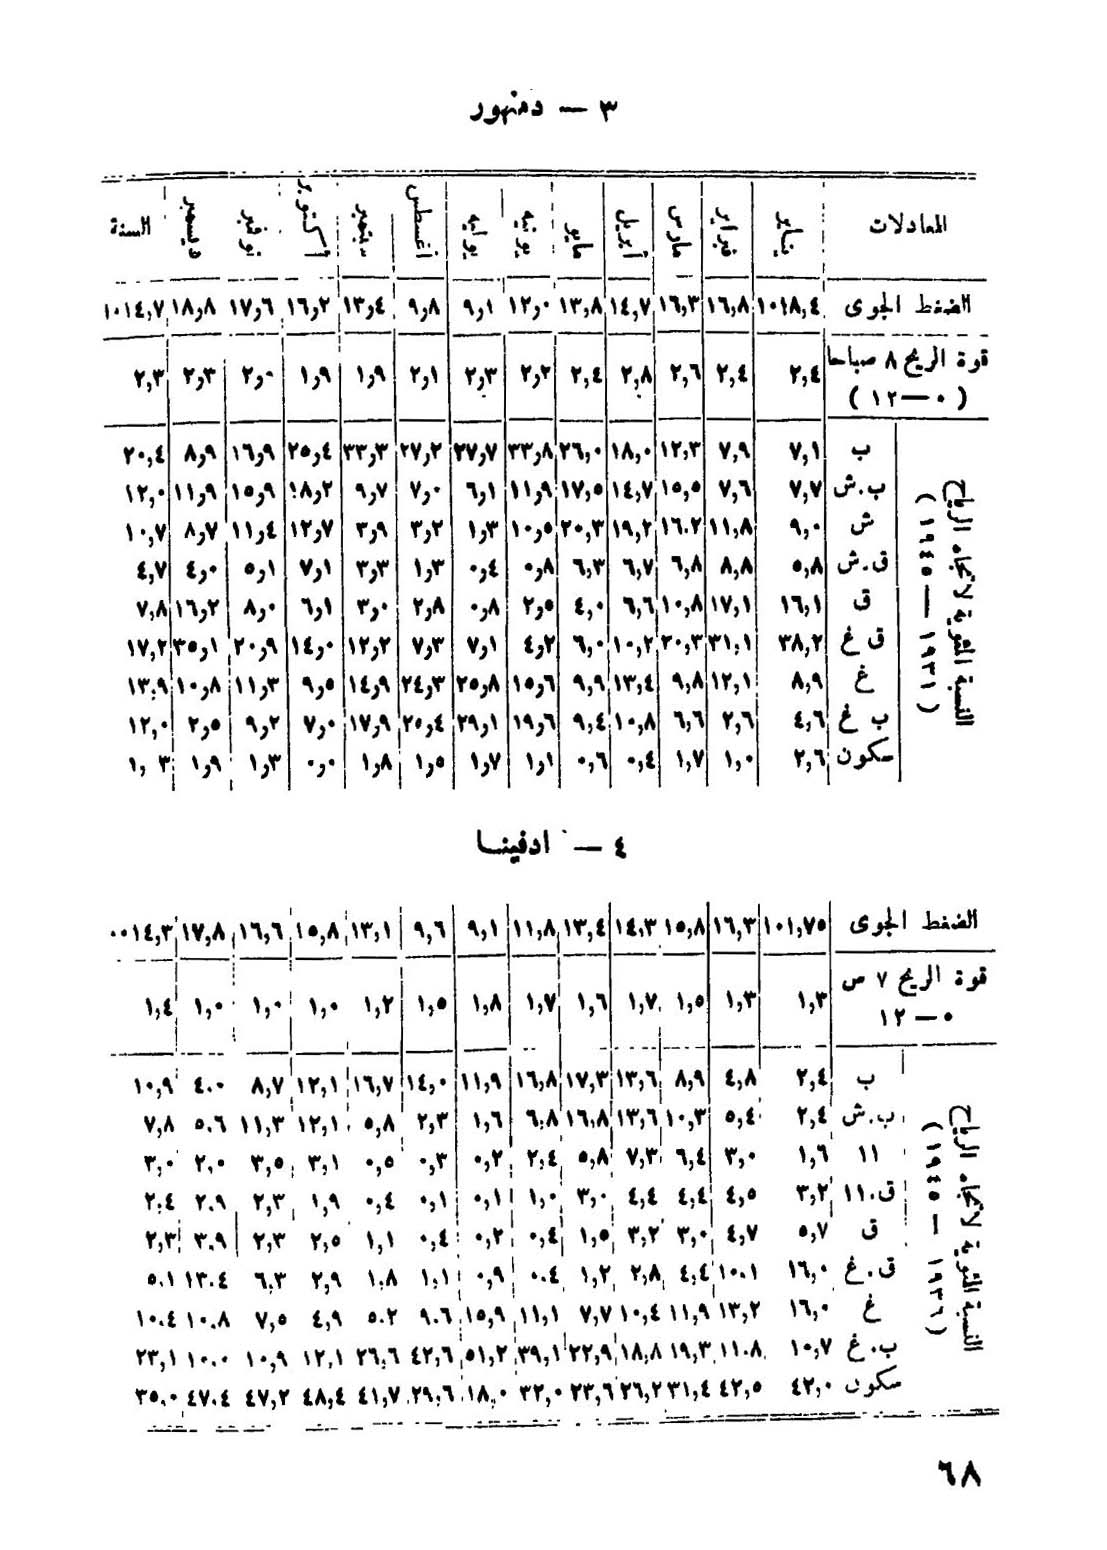 ٣ — دمنهور
المعادلات يناير فبراير مارس أبريل مايو يونيه يوليه أغسطس سبتمبر أكتوبر نوفمبر ديسمبر السنة
الضغط الجوى ١٠١٨,٤ ١٦,٨ ١٦,٣ ١٤,٧ ١٣,٨ ١٢,٠ ٩,١ ٩,٨ ١٣,٤ ١٦,٢ ١٧,٦ ١٨,٨ ١٠١٤,٧
قوة الريح ٨ صباحا
(٠—١٢) ٢,٤ ٢,٤ ٢,٦ ٢,٨ ٢,٤ ٢,٢ ٢,٣ ٢,١ ١,٩ ١,٩ ٢,٠ ٢,٣ ٢,٣
النسبة المئوية لاتجاه الرياح
(١٩٣١ — ١٩٤٥)
ب ٧,١ ٧,٩ ١٢,٣ ١٨,٠ ٢٦,٠ ٣٣,٨ ٢٧,٧ ٢٧,٢ ٣٣,٣ ٢٥,٤ ١٦,٩ ٨,٩ ٢٠,٤
ب.ش ٧,٧ ٧,٦ ١٥,٥ ١٤,٧ ١٧,٥ ١١,٩ ٦,١ ٧,٠ ٩,٧ ١٨,٢ ١٥,٩ ١١,٩ ١٢,٠
ش ٩,٠ ١١,٨ ١٦.٢ ١٩,٢ ٢٠,٣ ١٠,٥ ١,٣ ٢,٢ ٣,٩ ١٢,٧ ١١,٤ ٨,٧ ١٠,٧
ق.ش ٥,٨ ٨,٨ ٦,٨ ٦,٧ ٦,٣ ٠,٨ ٠,٤ ١,٣ ٣,٣ ٧,١ ٥,١ ٤,٠ ٤,٧
ق ١٦,١ ١٧,١ ١٠,٨ ٦,٦ ٤,٠ ٢,٥ ٠,٨ ٢,٨ ٣,٠ ٦,١ ٨,٠ ١٦,٢ ٧,٨
ق غ ٣٨,٢ ٣١,١ ٢٠,٣ ١٠,٢ ٦,٠ ٤,٢ ٧,١ ٧,٣ ١٢,٢ ١٤,٠ ٢٠,٩ ٣٥,١ ١٧,٢
غ ٨,٩ ١٢,١ ٩,٨ ١٣,٤ ٩,٩ ١٥,٦ ٢٥,٨ ٢٤,٣ ١٤,٩ ٩,٥ ١١,٣ ١٠,٨ ١٣,٩
ب غ ٤,٦ ٢,٦ ٦,٦ ١٠,٨ ٩,٤ ١٩,٦ ٢٩,١ ٢٥,٤ ١٧,٩ ٧,٠ ٩,٢ ٢,٥ ١٢,٠
سكون ٢,٦ ١,٠ ١,٧ ٠,٤ ٠,٦ ١,١ ١,٧ ١,٥ ١,٨ ٠,٠ ١,٣ ١,٩ ١,٣
٤ — ادفينا
الضغط الجوى ١٠١,٧٥ ١٦,٣ ١٥,٨ ١٤,٣ ١٣,٤ ١١,٨ ٩,١ ٩,٦ ١٣,١ ١٥,٨ ١٦,٦ ١٧,٨ ٠٠١٤,٣
قوة الريح ٧ ص
٠—١٢ ١,٣ ١,٣ ١,٥ ١,٧ ١,٦ ١,٧ ١,٨ ١,٥ ١,٢ ١,٠ ١,٠ ١,٠ ١,٤
النسبة المئوية لاتجاه الرياح
(١٩٣٦ — ١٩٤٥)
ب ٢,٤ ٤,٨ ٨,٩ ١٣,٦ ١٧,٣ ١٦,٨ ١١,٩ ١٤,٠ ١٦,٧ ١٢,١ ٨,٧ ٤.٠ ١٠,٩
ب.ش ٢,٤ ٥,٤ ١٠,٣ ١٣,٦ ١٦,٨ ٦.٨ ١,٦ ٢,٣ ٥,٨ ١٢,١ ١١,٣ ٥.٦ ٧,٨
١١ ١,٦ ٣,٠ ٦,٤ ٧,٣ ٥,٨ ٢,٤ ٠,٢ ٠,٣ ٠,٥ ٣,١ ٣,٥ ٢.٠ ٣,٠
ق.١١ ٣,٢ ٤,٥ ٤,٤ ٤,٤ ٣,٠ ١,٠ ٠,١ ٠,١ ٠,٤ ١,٩ ٢,٣ ٢.٩ ٢.٤
ق ٥,٧ ٤,٧ ٣,٠ ٣,٢ ١,٥ ٠,٤ ٠,٢ ٠,٤ ١,١ ٢,٥ ٢,٣ ٣.٩ ٢,٣
ق.غ ١٦,٠ ١٠.١ ٤,٤ ٢,٨ ١,٢ ٠.٤ ٠,٩ ١,١ ١.٨ ٢,٩ ٦,٣ ١٣.٤ ٥.١
غ ١٦,٠ ١٣,٢ ١١,٩ ١٠,٤ ٧,٧ ١١,١ ١٥,٩ ٩.٦ ٥.٢ ٤,٩ ٧,٥ ١٠.٨ ١٠.٤
ب.غ ١٠,٧ ١١.٨ ١٩,٣ ١٨,٨ ٢٢,٩ ٣٩,١ ٥١,٢ ٤٢,٦ ٢٦,٦ ١٢,١ ١٠,٩ ١٠.٠ ٢٣,١
سكون ٤٢,٠ ٤٢,٥ ٣١,٤ ٢٦,٢ ٢٣,٦ ٢٢,٠ ١٨,٠ ٢٩,٦ ٤١,٧ ٤٨,٤ ٤٧,٢ ٤٧.٤ ٣٥.٠
٦٨